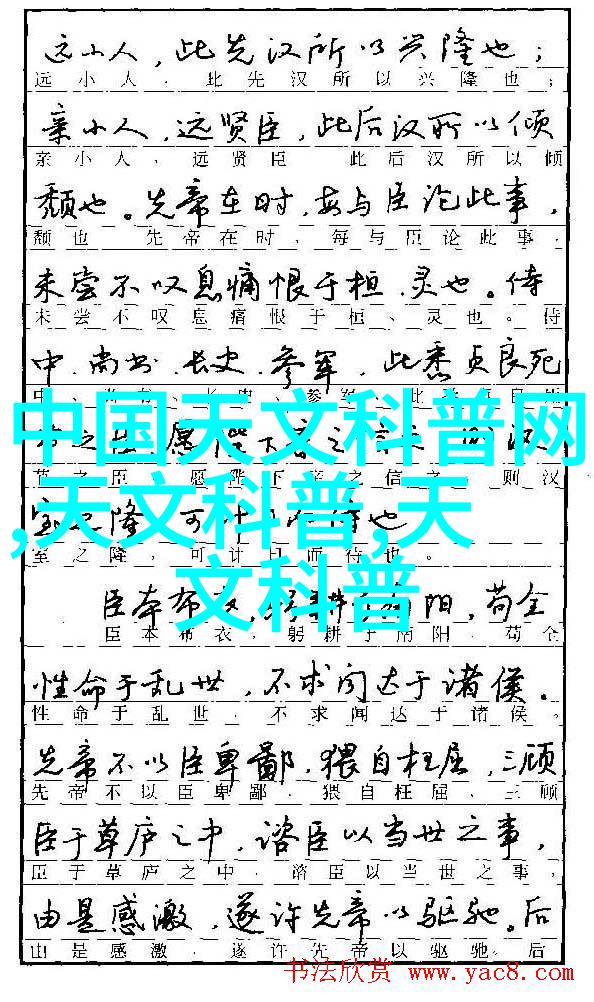 远小人，此先汉所以兴隆也；
远小人，此先汉所以兴隆也；
亲小人，远贤臣，此后汉所以倾
亲小人，远贤臣 此后汉所以倾
颓也。先帝在时，每与臣论此事，
颓也 先帝在时，每与臣论此事，
未尝不叹息痛恨于桓、灵也。侍
未尝不叹息痛恨于桓、灵也。侍
中、尚书、长史、参军，此悉贞良死
中国天文科普网
,天文科普,天
文科普
之臣 愿陛下 之信之 则汉
室之隆，可计日而待也
室之隆，可计日而待也。
臣本布衣，躬耕于南阳，苟全
臣本布衣，躬耕于南阳，苟全
性命于乱世，不求闻达于诸侯。
性命于乱世，不求闻达于诸侯。
先帝不以臣卑鄙，猥自枉屈，三顾
先帝不以臣卑鄙，猥自枉屈、三顾
臣于草庐之中，谘臣以当世之事，
臣于草庐之中，谘臣以当世之事，
由是感激，遂许先帝以驱驰。后
由是感激，遂许先帝以驱驰。后
书法欣赏 www.yac8.com